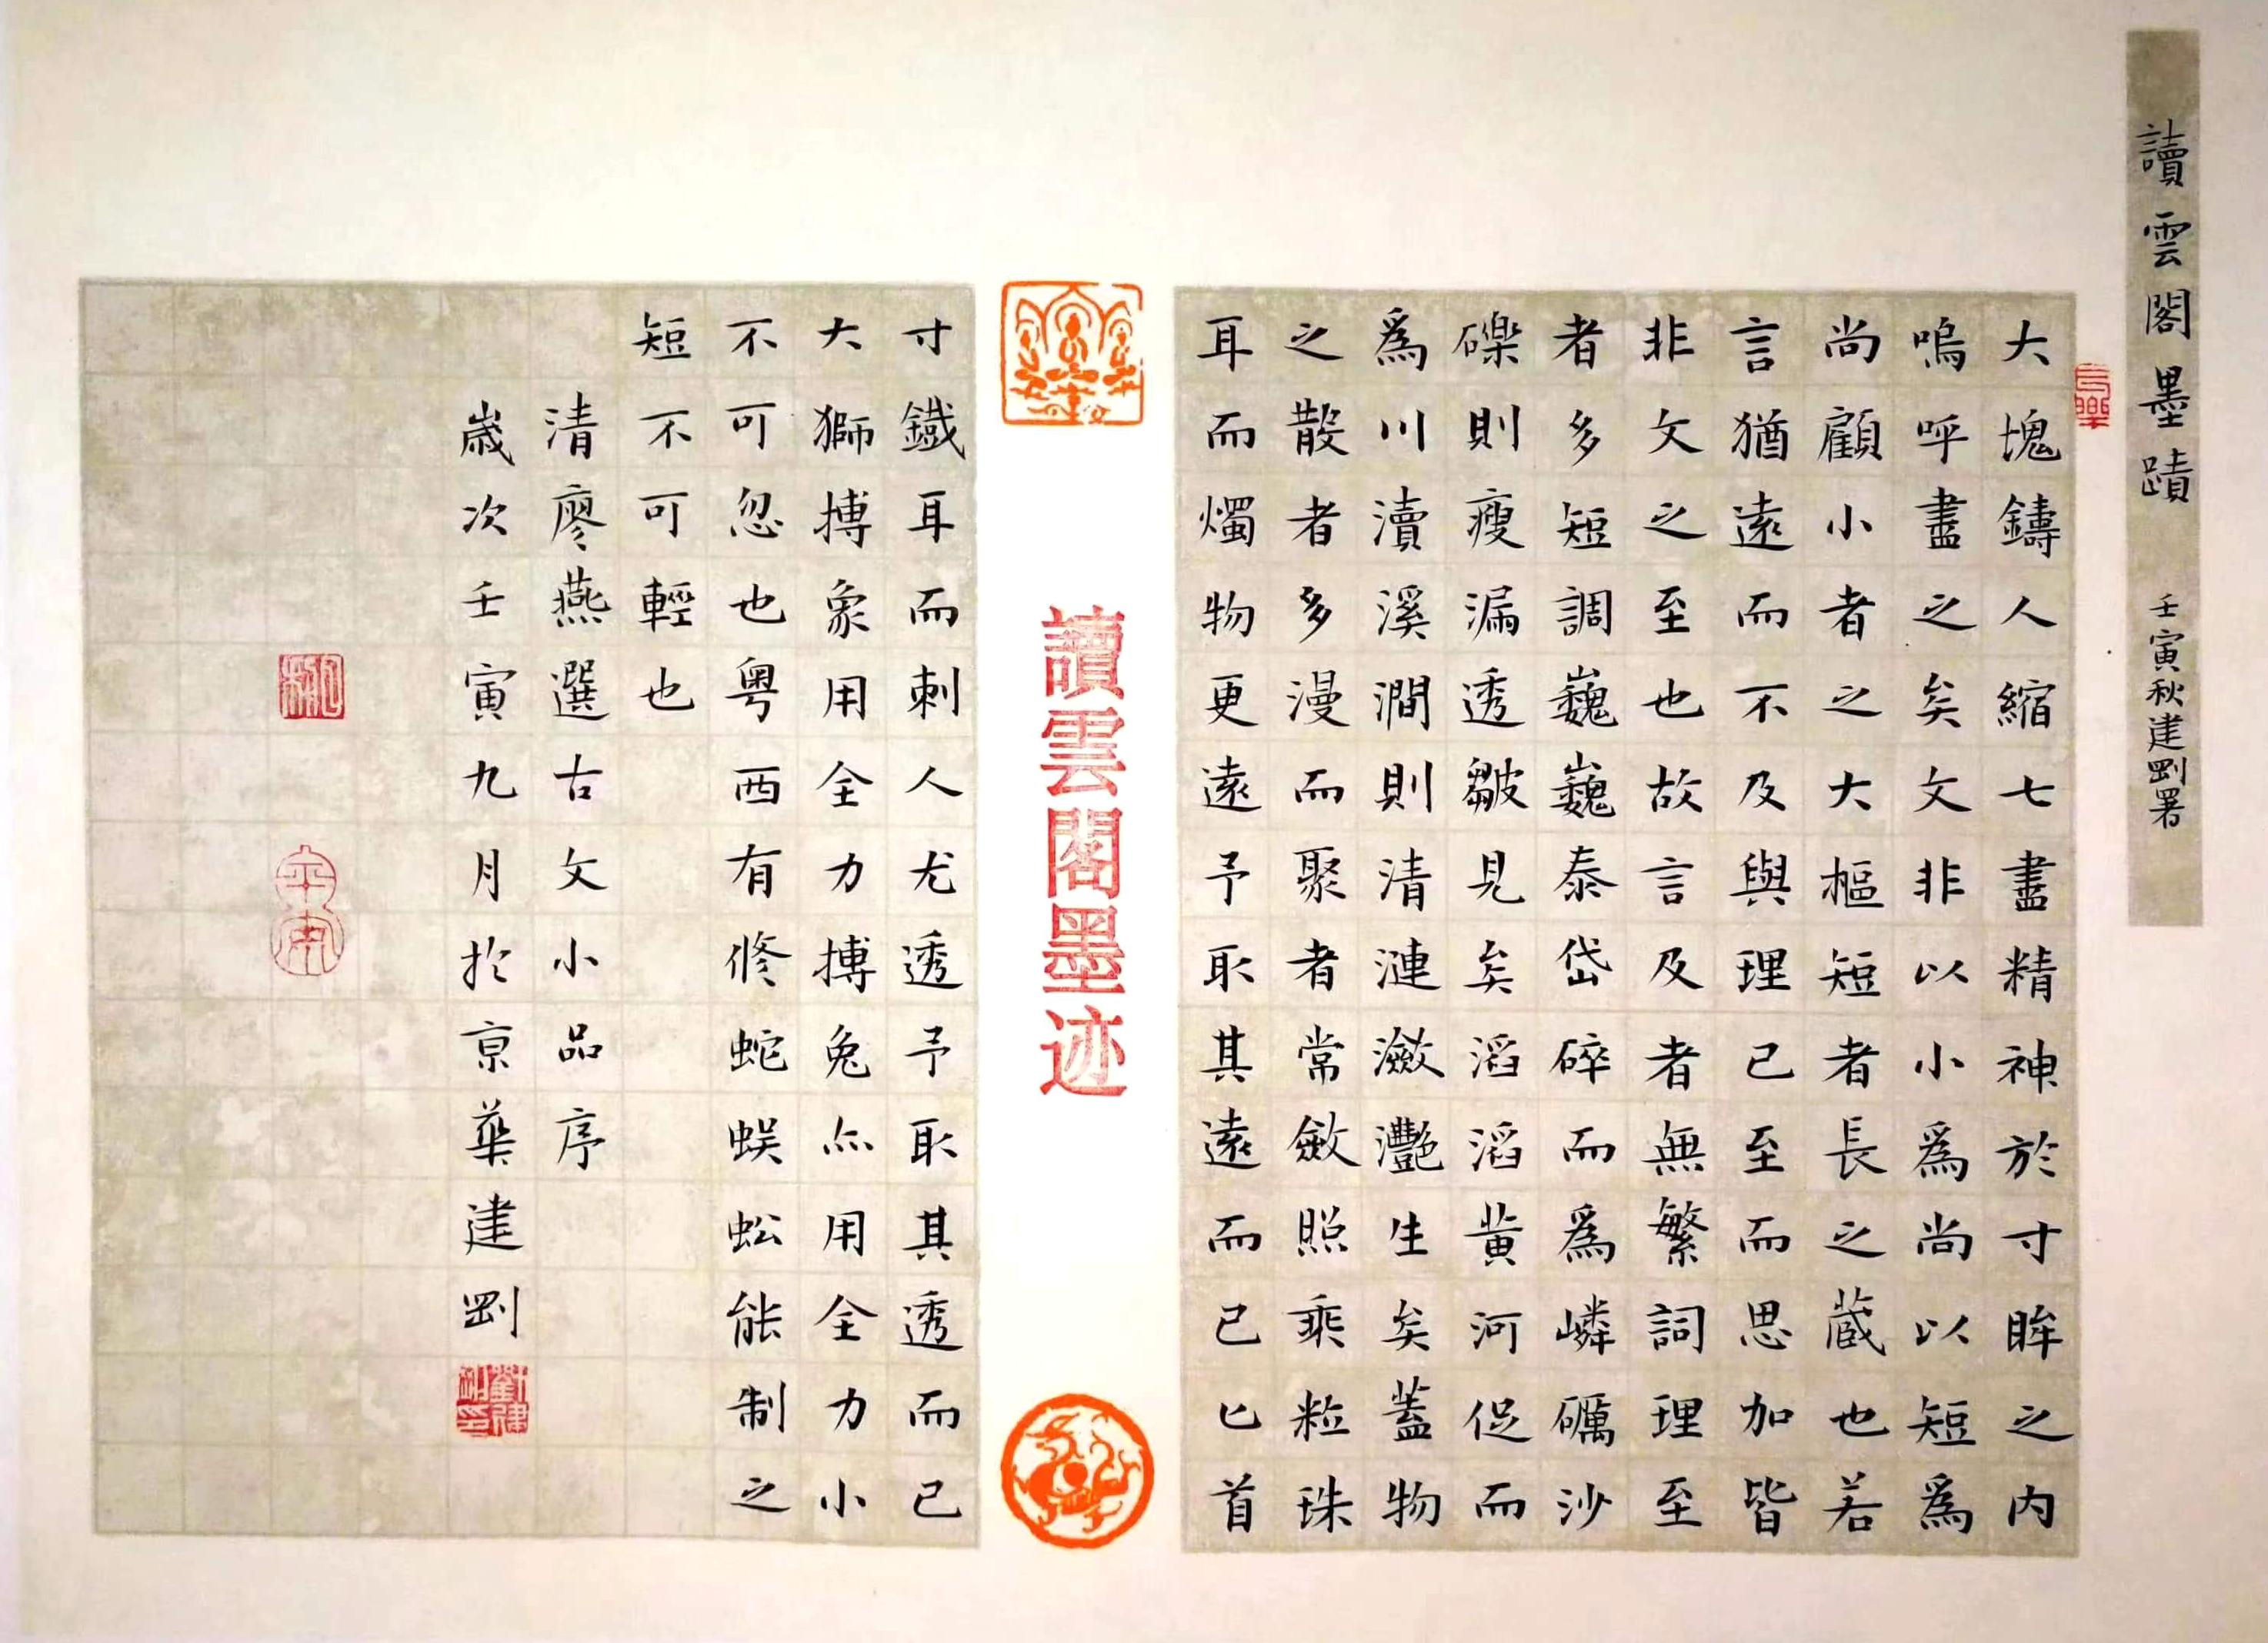 讀雲閣墨蹟 壬寅秋建剛署
大塊鑄人縮七盡精神於寸眸之内
嗚呼盡之矣文非以小為尚以短為
尚顧小者之大樞短者長之藏也若
言猶遠而不及與理已至而思加皆
非文之至也故言及者無繁詞理至
者多短調巍巍泰岱碎而為嶙礪沙
礫則瘦漏透皺見矣滔滔黃河促而
為川瀆溪澗則清漣瀲灧生矣蓋物
之散者多漫而聚者常斂照乘粒珠
耳而燭物更遠予取其遠而已匕首
讀雲閣墨迹
寸鐵耳而刺人尤透予取其透而已
大獅搏象用全力搏兔亦用全力小
不可忽也粵西有修蛇蜈蚣能制之
短不可輕也
清廖燕選古文小品序
歲次壬寅九月於京華建剛
劉建剛印